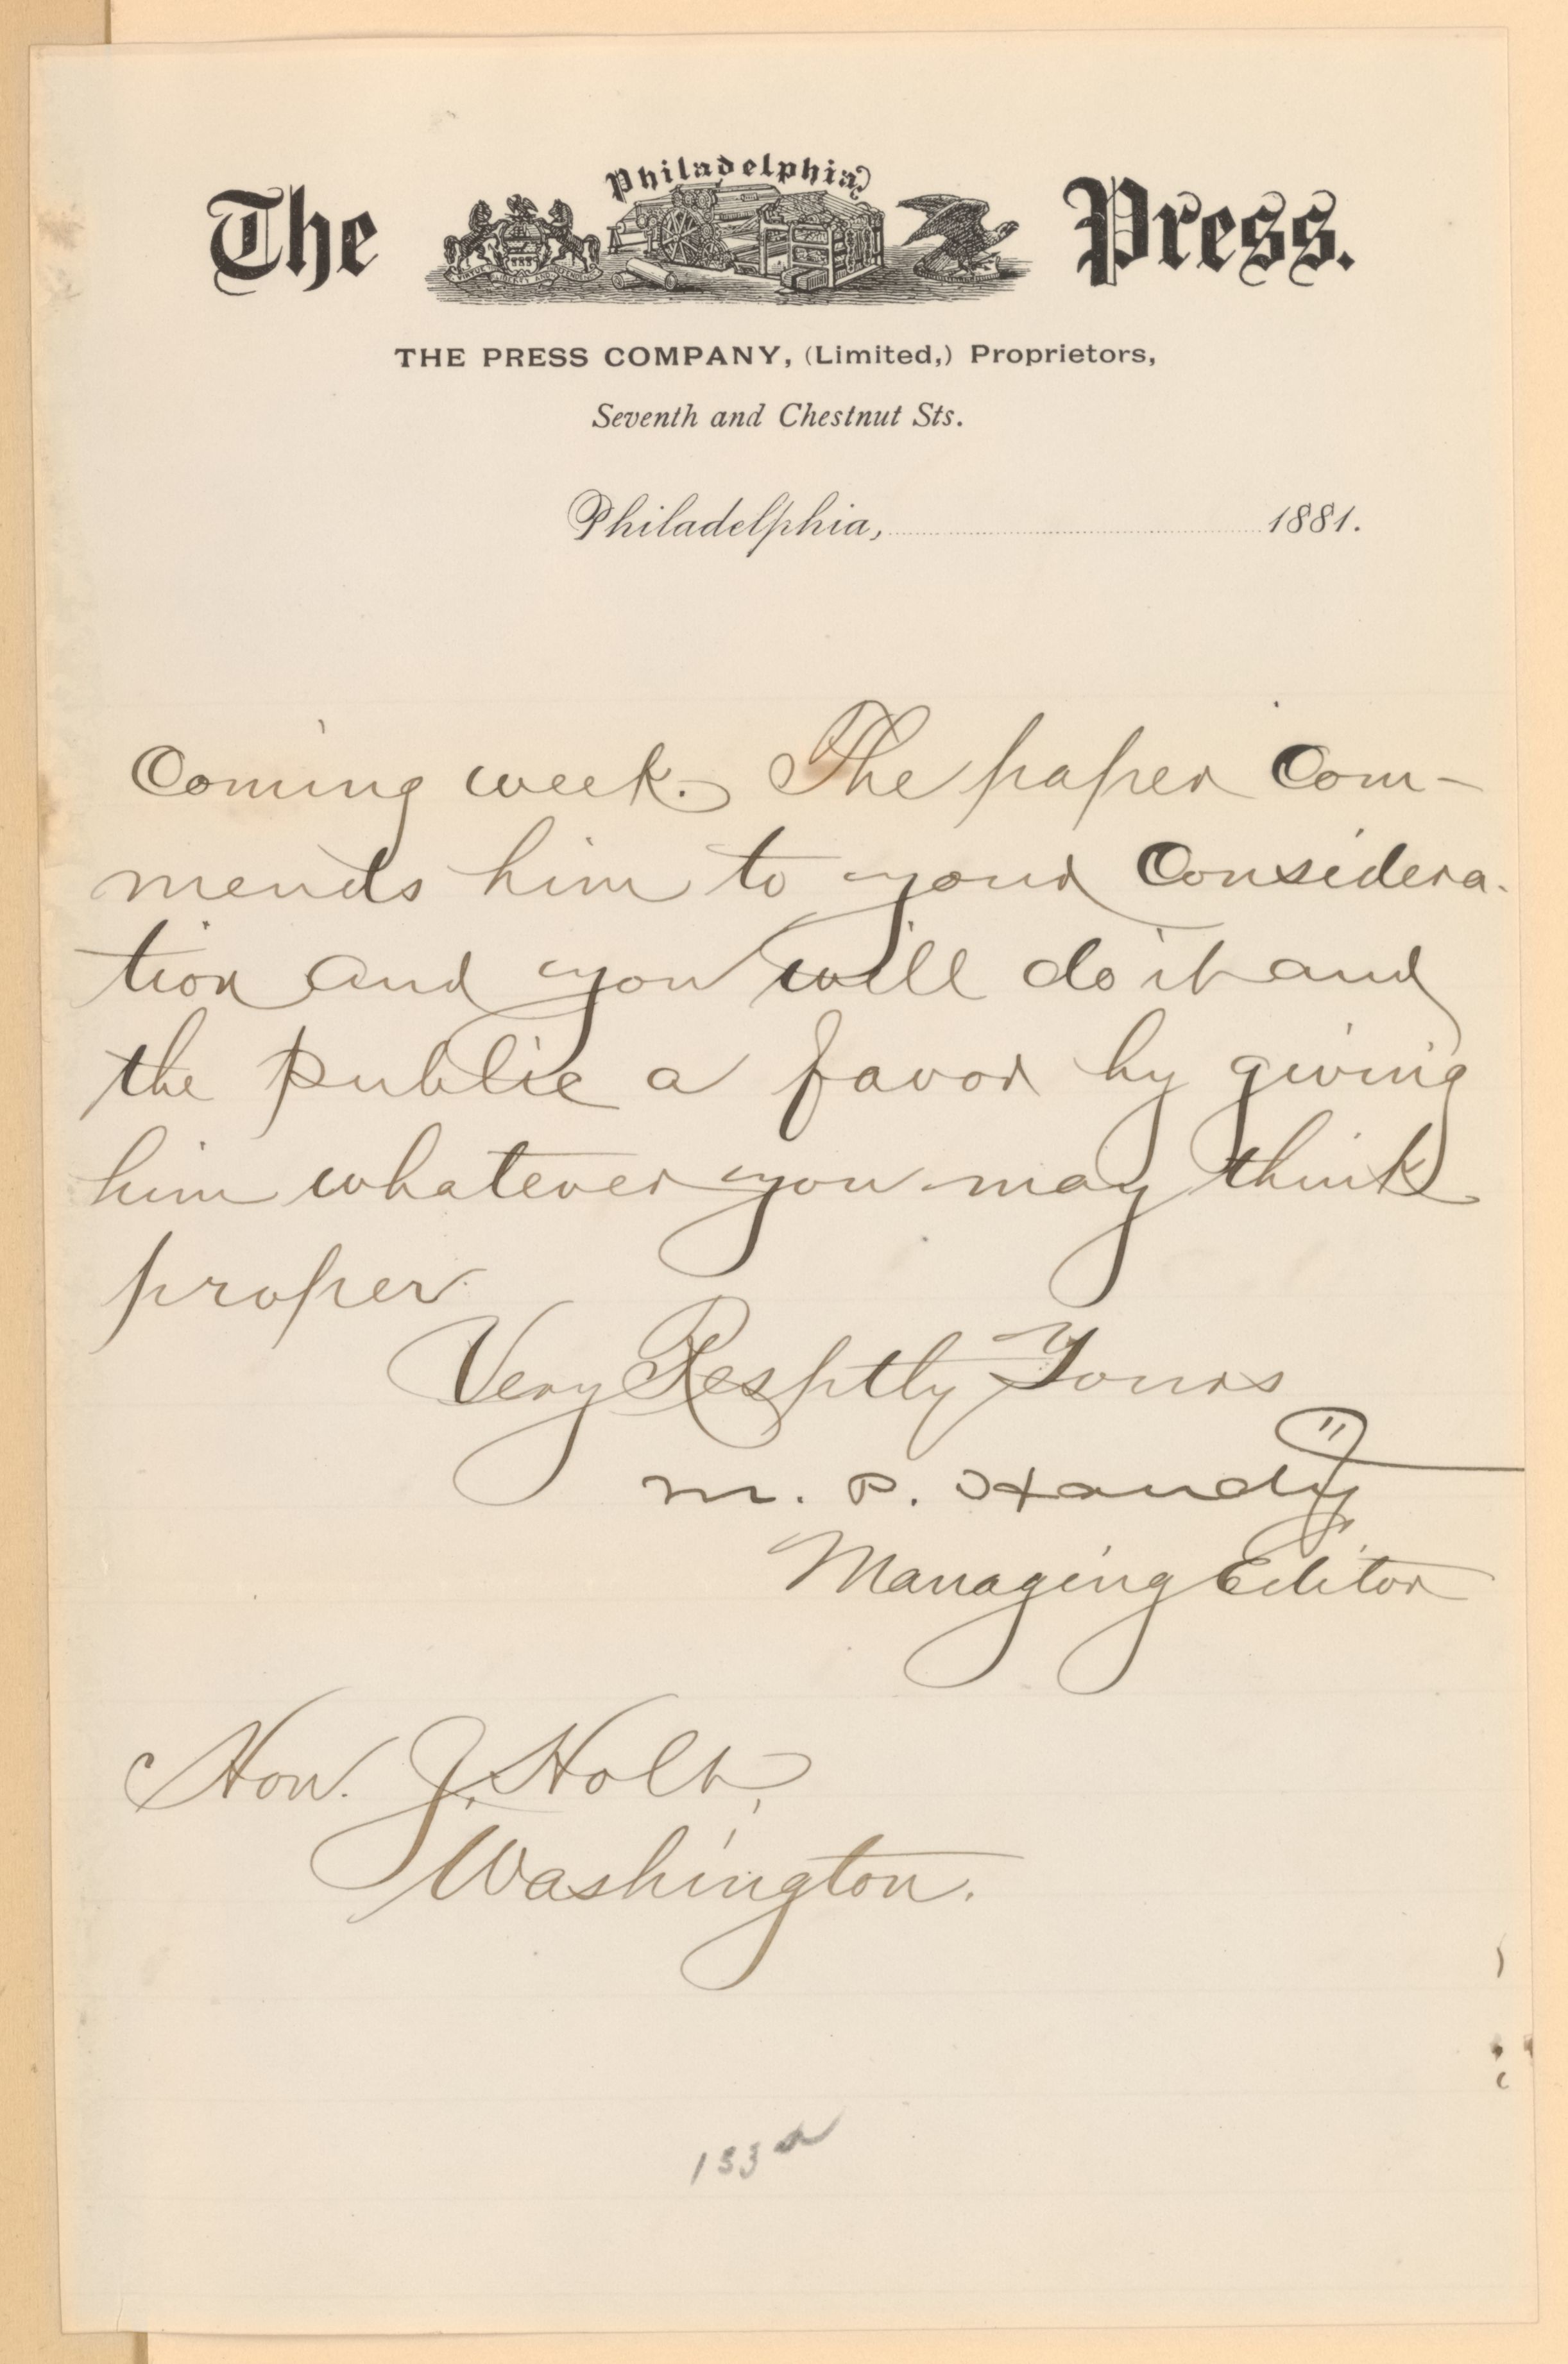 The Philadelphia Press.
THE PRESS COMPANY, (Limited,) Proprietors,
Seventh and Chestnut Sts.
Philadelphia, 1881.
Coming week. The paper Com-
mends him to your Considera-
tion and you will do it and
the public a favor by giving
him whatever you may think
proper.
Very Resptly Yours
M. P. Handy
Managing Editor
Hon. J. Holt,
Washington.